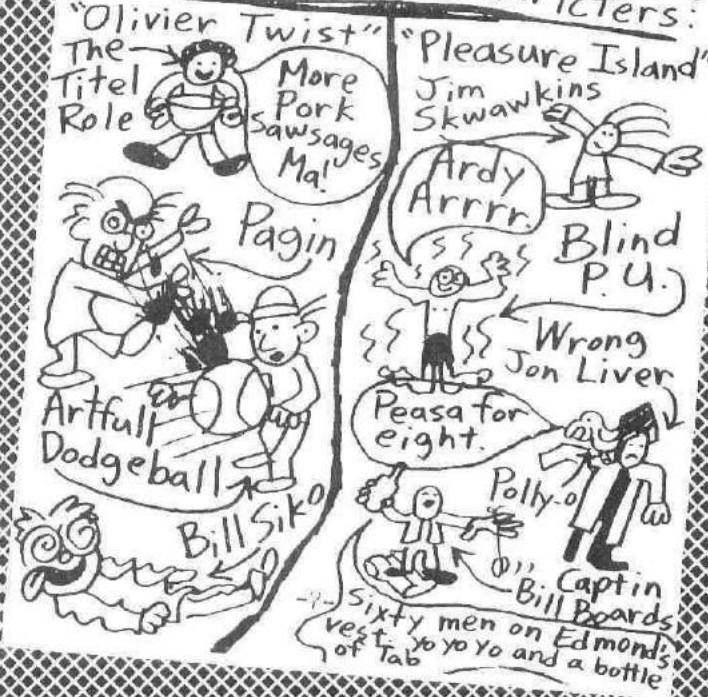 icters:
"Olivier Twist"
The
Titel
Role
More
Pork
Sawsages
Ma!
Pagin
Artfull
Dodgeball
Bill Siko
"Pleasure Island"
Jim
Skwawkins
Ardy
Arrrr.
Blind
P.U.
Wrong
Jon Liver
Peasa for
eight.
Polly-o
Captin
Bill Boards
Sixty men on Edmond's
vest yo yo yo and a bottle
of Tab